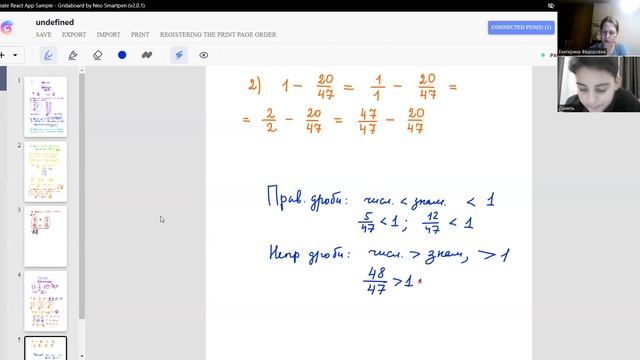 eate React App Sample - Gridaboard by Neo Smartpen (v2.0.1)
undefined
SAVE EXPORT IMPORT PRINT REGISTERING THE PRINT PAGE ORDER
CONNECTED PEN(S) (1)
Екатерина Федоровна
Даниль
1
2
3
4
5
2) 1 - 20/47 = 1/1 - 20/47 =
= 2/2 - 20/47 = 47/47 - 20/47
Прав. дроби: числ. < знам. < 1
5/47 < 1; 12/47 < 1
Непр дроби: числ. > знам, > 1
48/47 > 1